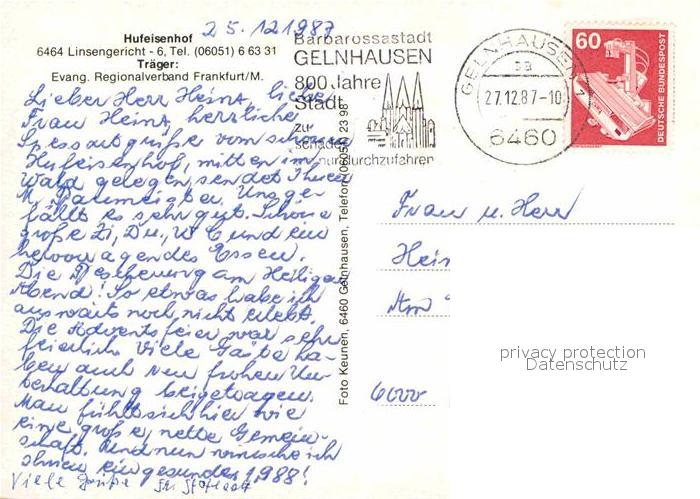 25.12.1987
Hufeisenhof
6464 Linsengericht - 6, Tel. (06051) 6 63 31
Träger:
Evang. Regionalverband Frankfurt/M.
Lieber Herr Heinz, liebe
Frau Heinz, herzliche
Spessartgrüße vom schönen
Hufeisenhof, mitten im
Wald gelegen, sendet Ihnen
M. Baumeister. Uns ge-
fällt es sehr gut. Schöne
große Zi, Du, WC und ein
hervorragendes Essen.
Die Bescherung am Heiligen
Abend! So etwas habe ich
auswärts noch nicht erlebt.
Die Adventsfeier war sehr
feierlich. Viele Gäste ha-
ben auch zur frohen Un-
terhaltung beigetragen.
Man fühlt sich hier wie
eine große, nette Gemein-
schaft. Und nun wünsche ich
Ihnen ein gesundes 1988!
Viele Grüße Fr.
Foto Keunen, 6460 Gelnhausen, Telefon (06051) 23 98
Barbarossastadt
GELNHAUSEN
800 Jahre
Stadt
zu
schade
nur durchzufahren
GELNHAUSEN 1
27.12.87-10
6460
60
DEUTSCHE BUNDESPOST
Frau u. Herr
Hein
Am
6000
privacy protection
Datenschutz